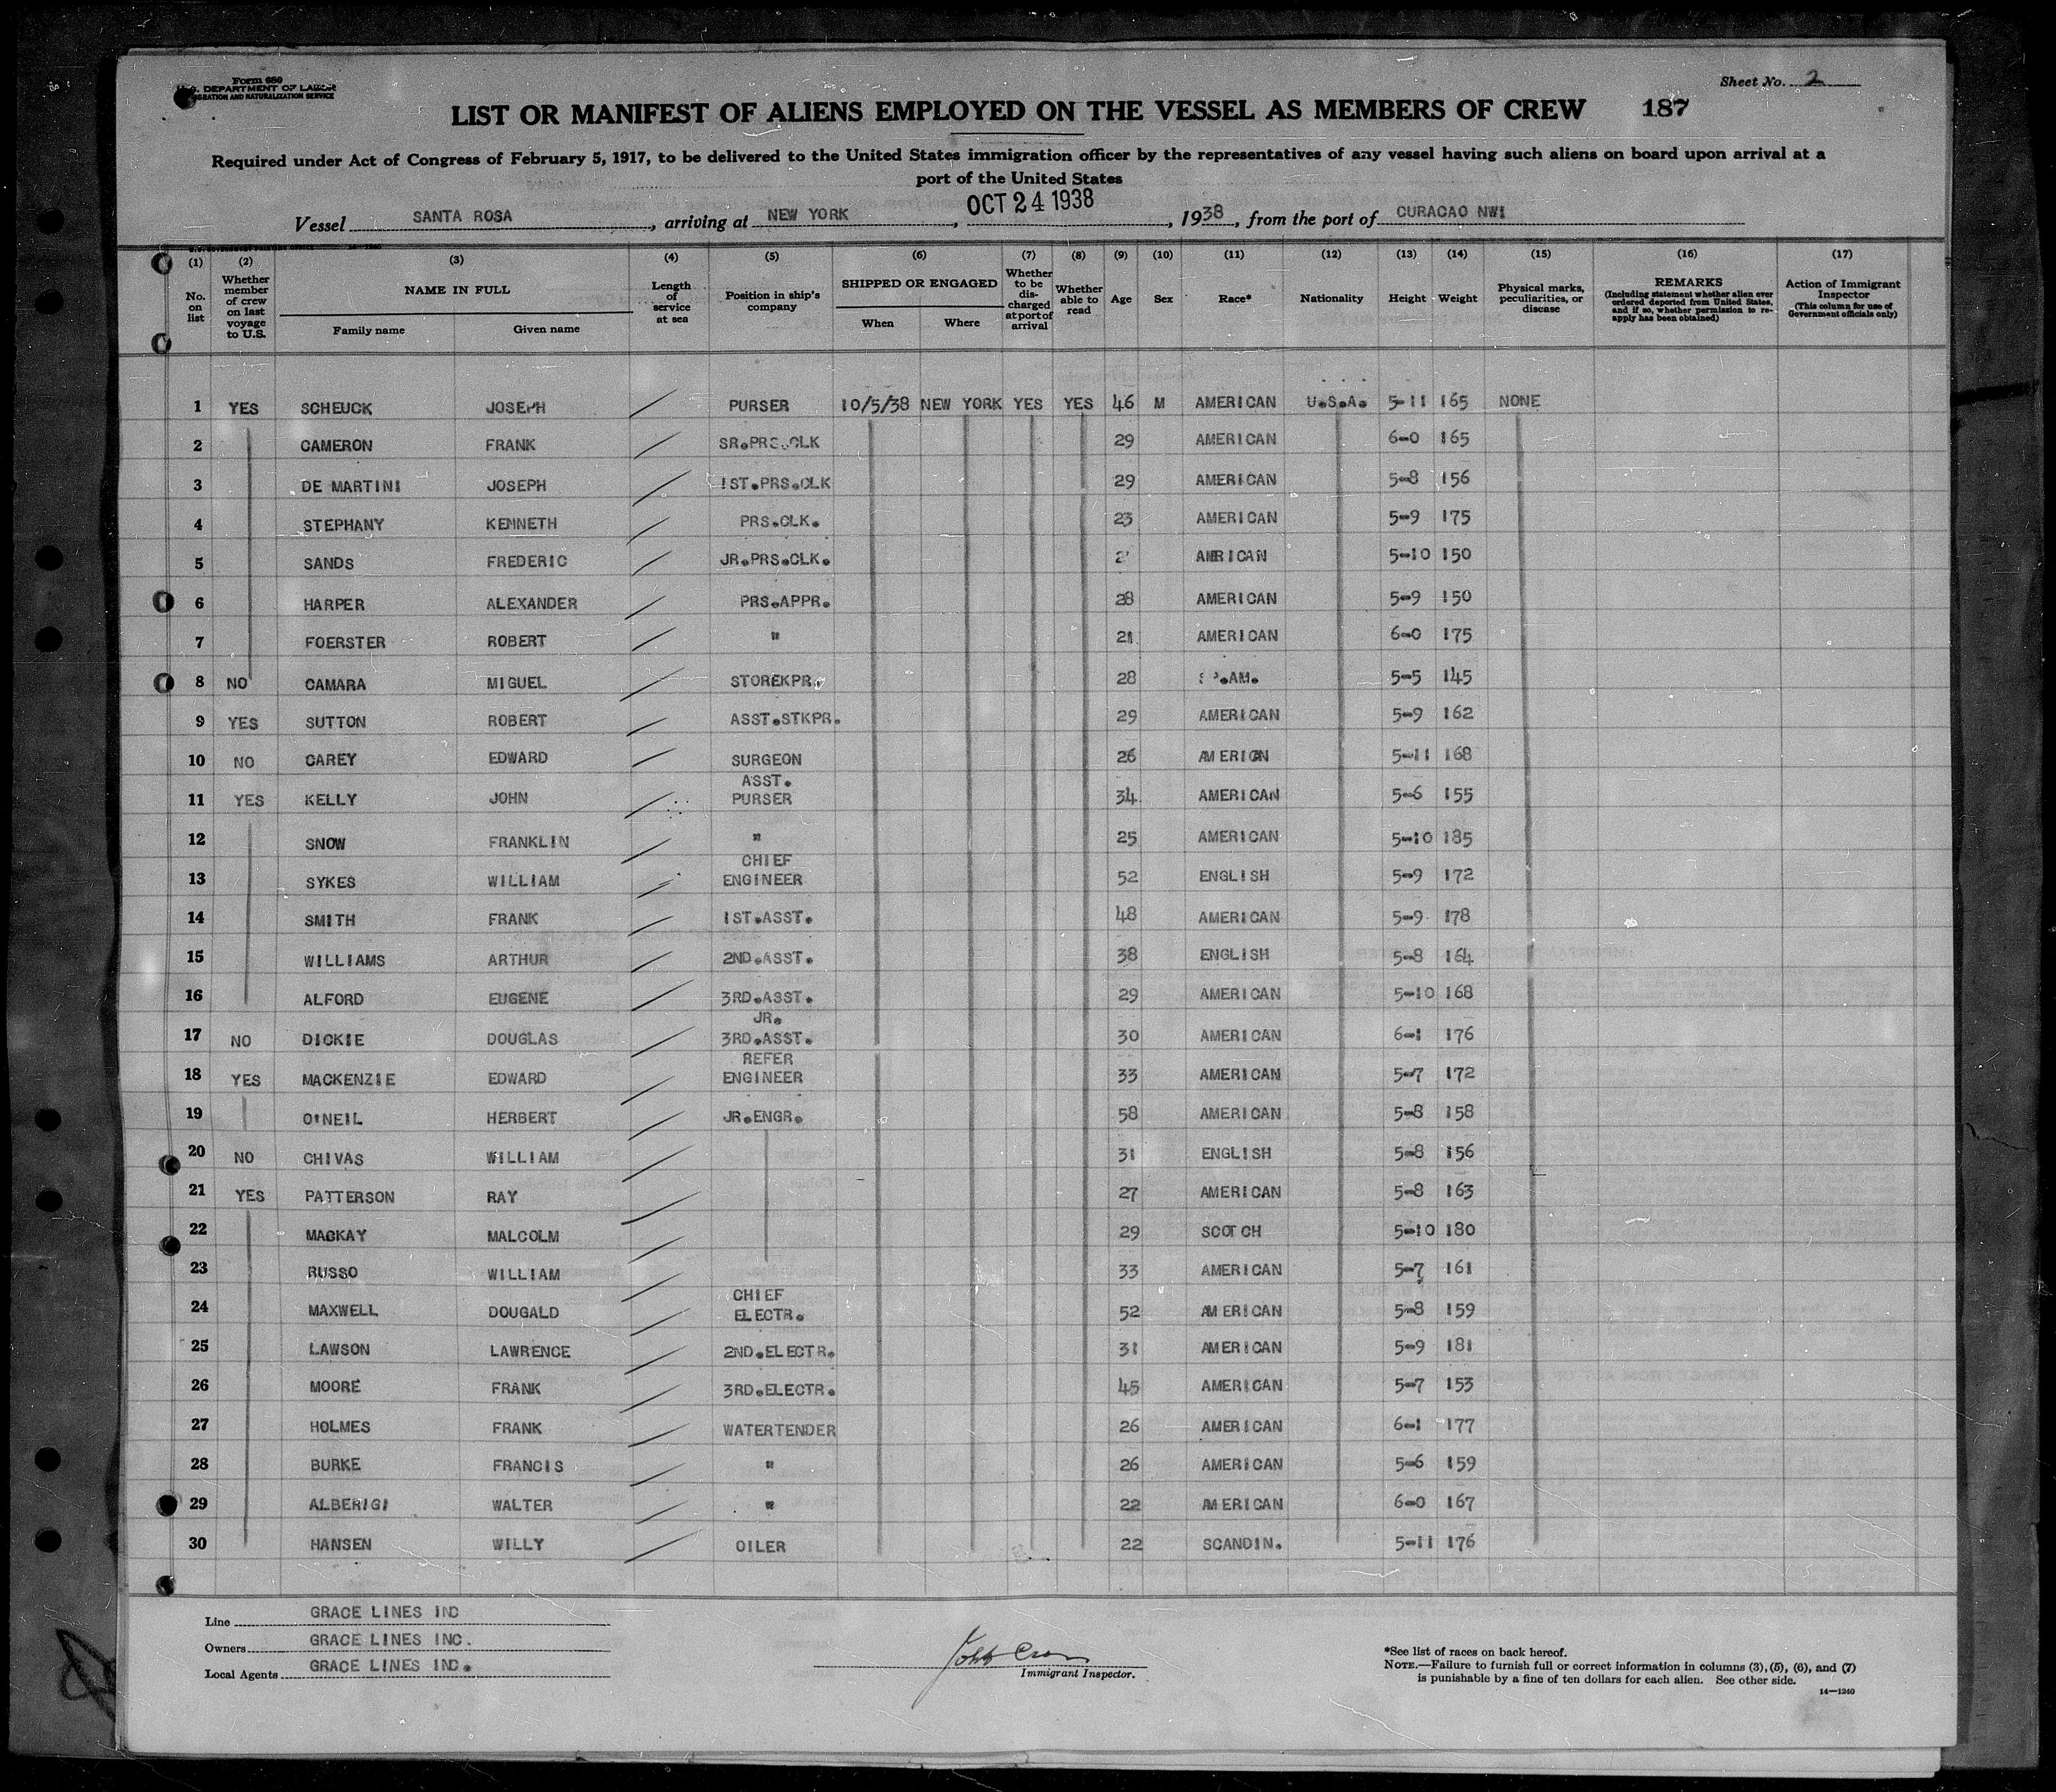 Form 680
U.S. DEPARTMENT OF LABOR
IMMIGRATION AND NATURALIZATION SERVICE
Sheet No. 2
LIST OR MANIFEST OF ALIENS EMPLOYED ON THE VESSEL AS MEMBERS OF CREW 187
Required under Act of Congress of February 5, 1917, to be delivered to the United States immigration officer by the representatives of any vessel having such aliens on board upon arrival at a
port of the United States
Vessel SANTA ROSA, arriving at NEW YORK, OCT 24 1938, 1938, from the port of CURACAO NWI
(1) No. on list
(2) Whether member of crew on last voyage to U.S.
(3) NAME IN FULL
Family name
Given name
(4) Length of service at sea
(5) Position in ship's company
(6) SHIPPED OR ENGAGED
When
Where
(7) Whether to be discharged at port of arrival
(8) Whether able to read
(9) Age
(10) Sex
(11) Race*
(12) Nationality
(13) Height
(14) Weight
(15) Physical marks, peculiarities, or disease
(16) REMARKS (Including statement whether alien ever ordered deported from United States, and if so, whether permission to re-apply has been obtained)
(17) Action of Immigrant Inspector (This column for use of Government officials only)
1 YES SCHEUCK JOSEPH PURSER 10/5/38 NEW YORK YES YES 46 M AMERICAN U.S.A. 5-11 165 NONE
2 CAMERON FRANK SR.PRS.CLK 29 AMERICAN 6-0 165
3 DE MARTINI JOSEPH 1ST.PRS.CLK 29 AMERICAN 5-8 156
4 STEPHANY KENNETH PRS.CLK. 23 AMERICAN 5-9 175
5 SANDS FREDERIC JR.PRS.CLK. AMRICAN 5-10 150
6 HARPER ALEXANDER PRS.APPR. 28 AMERICAN 5-9 150
7 FOERSTER ROBERT " 21 AMERICAN 6-0 175
8 NO CAMARA MIGUEL STOREKPR. 28 .AM. 5-5 145
9 YES SUTTON ROBERT ASST.STKPR. 29 AMERICAN 5-9 162
10 NO CAREY EDWARD SURGEON 26 AMERICN 5-11 168
11 YES KELLY JOHN ASST. PURSER 34 AMERICAN 5-6 155
12 SNOW FRANKLIN " 25 AMERICAN 5-10 185
13 SYKES WILLIAM CHIEF ENGINEER 52 ENGLISH 5-9 172
14 SMITH FRANK 1ST.ASST. 48 AMERICAN 5-9 178
15 WILLIAMS ARTHUR 2ND.ASST. 38 ENGLISH 5-8 164
16 ALFORD EUGENE 3RD.ASST. 29 AMERICAN 5-10 168
17 NO DICKIE DOUGLAS JR. 3RD.ASST. 30 AMERICAN 6-1 176
18 YES MACKENZIE EDWARD REFER ENGINEER 33 AMERICAN 5-7 172
19 O'NEIL HERBERT JR.ENGR. 58 AMERICAN 5-8 158
20 NO CHIVAS WILLIAM 31 ENGLISH 5-8 156
21 YES PATTERSON RAY 27 AMERICAN 5-8 163
22 MACKAY MALCOLM 29 SCOTCH 5-10 180
23 RUSSO WILLIAM 33 AMERICAN 5-7 161
24 MAXWELL DOUGALD CHIEF ELECTR. 52 AMERICAN 5-8 159
25 LAWSON LAWRENCE 2ND.ELECTR. 31 AMERICAN 5-9 181
26 MOORE FRANK 3RD.ELECTR. 45 AMERICAN 5-7 153
27 HOLMES FRANK WATERTENDER 26 AMERICAN 6-1 177
28 BURKE FRANCIS " 26 AMERICAN 5-6 159
29 ALBERIGI WALTER " 22 AMERICAN 6-0 167
30 HANSEN WILLY OILER 22 SCANDIN. 5-11 176
Line GRACE LINES INC
Owners GRACE LINES INC.
Local Agents GRACE LINES INC.
Immigrant Inspector.
*See list of races on back hereof.
NOTE.—Failure to furnish full or correct information in columns (3), (5), (6), and (7)
is punishable by a fine of ten dollars for each alien. See other side.
14—1240